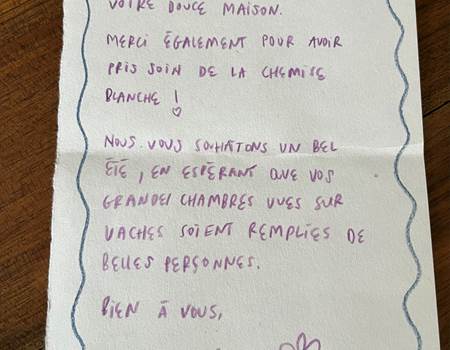 VOTRE DOUCE MAISON.
MERCI ÉGALEMENT POUR AVOIR
PRIS SOIN DE LA CHEMISE
BLANCHE !
NOUS VOUS SOUHAITONS UN BEL
ÉTÉ, EN ESPÉRANT QUE VOS
GRANDES CHAMBRES VUES SUR
VACHES SOIENT REMPLIES DE
BELLES PERSONNES.
BIEN À VOUS,